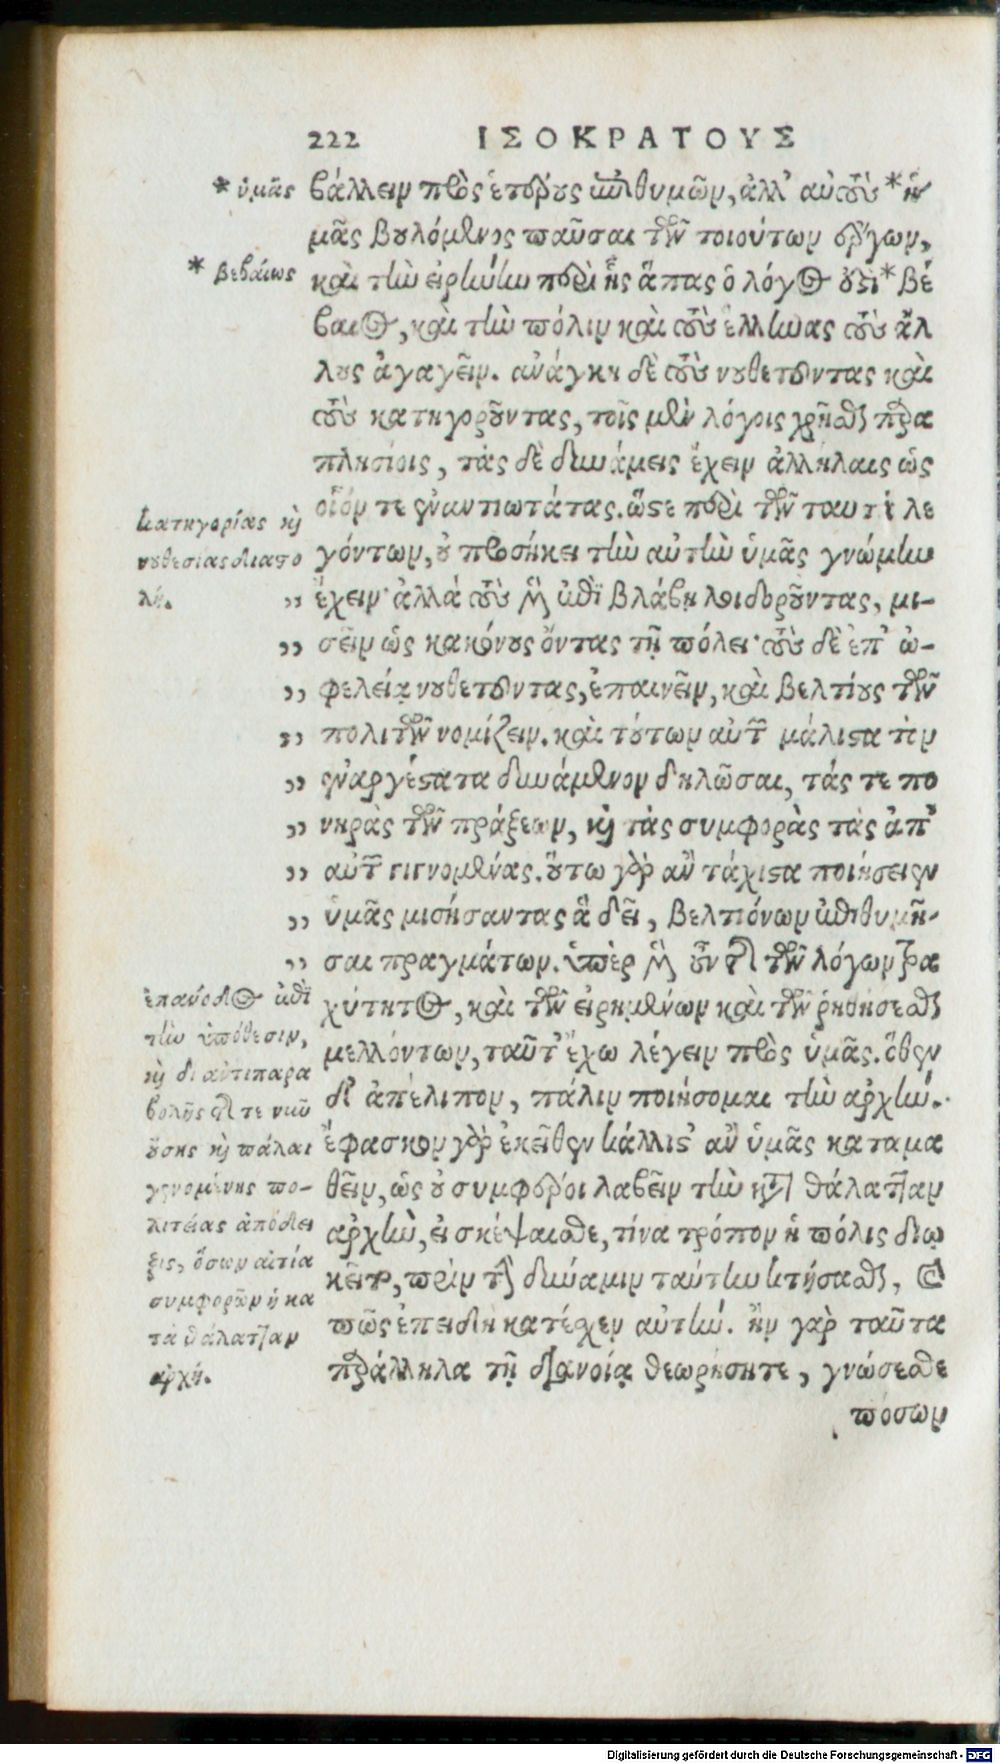 222 ΙΣΟΚΡΑΤΟΥΣ
* ὑμᾶς
βάλλειν πρὸς ἑτέρους ἐπιθυμῶν, ἀλλ' αὐτοὺς * ἡ
μᾶς βουλόμενος παῦσαι τῶν τοιούτων ἔργων,
* βεβαίως
καὶ τὴν εἰρήνην περὶ ἧς ἅπας ὁ λόγος ἐστὶ * βέ
βαιος, καὶ τὴν πόλιν καὶ τοὺς ἕλληνας τοὺς ἄλ
λους ἀγαγεῖν. ἀνάγκη δὲ τοὺς νουθετοῦντας καὶ
τοὺς κατηγοροῦντας, τοῖς μὲν λόγοις χρῆσθαι παρα
πλησίοις, τὰς δὲ δυνάμεις ἔχειν ἀλλήλαις ὡς
οἷόν τε ἐναντιωτάτας. ὥστε περὶ τῶν ταυτὶ λε
γόντων, οὐ προσήκει τὴν αὐτὴν ὑμᾶς γνώμην
ἔχειν· ἀλλὰ τοὺς μὲν ἐπὶ βλάβῃ λοιδοροῦντας, μι-
σεῖν ὡς κακόνους ὄντας τῇ πόλει· τοὺς δὲ ἐπ' ὠ-
φελείᾳ νουθετοῦντας, ἐπαινεῖν, καὶ βελτίους τῶν
πολιτῶν νομίζειν. καὶ τούτων αὐτῶν μάλιστα τὸν
ἐναργέστατα δυνάμενον δηλῶσαι, τάς τε πο
νηρὰς τῶν πράξεων, καὶ τὰς συμφορὰς τὰς ἀπ'
αὐτῶν γιγνομένας. οὕτω γὰρ ἂν τάχιστα ποιήσειεν
ὑμᾶς μισήσαντας ἃ δεῖ, βελτιόνων ἐπιθυμῆ-
σαι πραγμάτων. ὑπὲρ μὲν οὖν τῆς τῶν λόγων τρα
χύτητος, καὶ τῶν εἰρημένων καὶ τῶν ῥηθήσεσθαι
μελλόντων, ταῦτ' ἔχω λέγειν πρὸς ὑμᾶς. ὅθεν
δ' ἀπέλιπον, πάλιν ποιήσομαι τὴν ἀρχήν.
ἔφασκον γὰρ ἐκεῖθεν κάλλιστ' ἂν ὑμᾶς καταμα
θεῖν, ὡς οὐ συμφέροι λαβεῖν τὴν κατὰ θάλατταν
ἀρχὴν, εἰ σκέψαισθε, τίνα τρόπον ἡ πόλις διῳ
κεῖτο, πρὶν τὴν δύναμιν ταύτην κτήσασθαι, καὶ
πῶς ἐπειδὴ κατέσχεν αὐτήν. ἢν γὰρ ταῦτα
παράλληλα τῇ διανοίᾳ θεωρήσητε, γνώσεσθε
πόσων
κατηγορίας καὶ
νουθεσίας διαστο
λή.
ἐπάνοδος ἐπὶ
τὴν ὑπόθεσιν,
καὶ δι ἀντιπαρα
βολῆς τῆς τε νῦν
οὔσης καὶ πάλαι
γενομένης πο-
λιτείας ἀπόδει
ξις, ὅσων αἰτία
συμφορῶν ἡ κα
τὰ θάλατταν
ἀρχή.
Digitalisierung gefördert durch die Deutsche Forschungsgemeinschaft - DFG